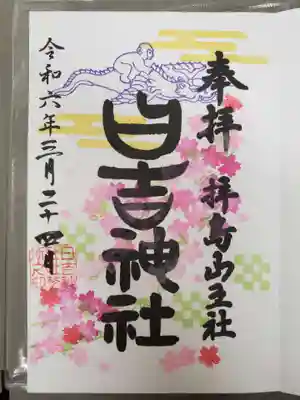 奉拝 拝島山王社
日吉神社
令和六年三月二十四日